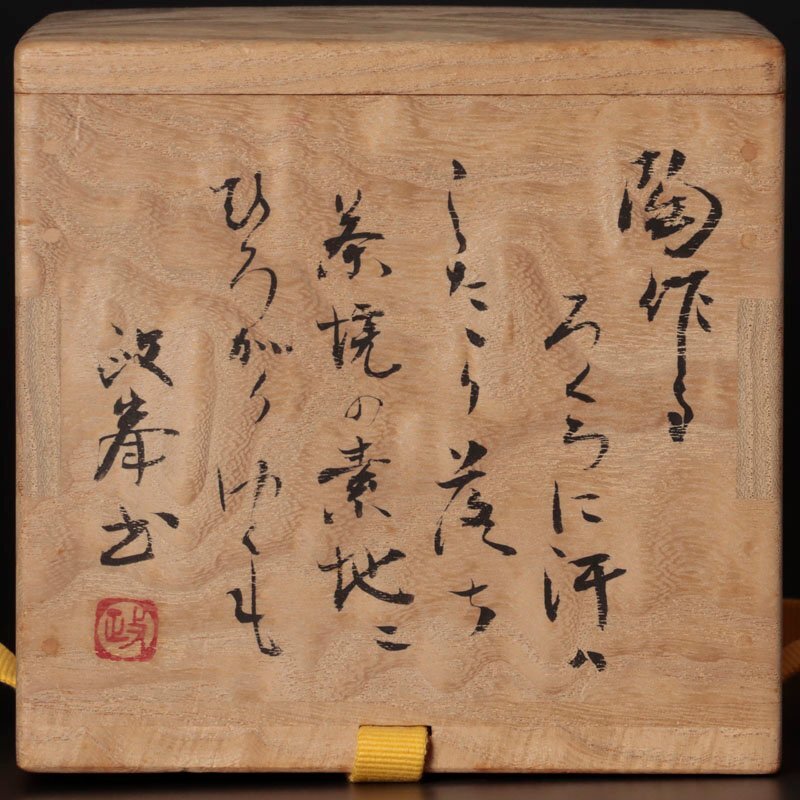 陶作る
ろくろに汗ハ
したたり落ち
茶境の素地ニ
ひろがりゆくも
政峯書
政